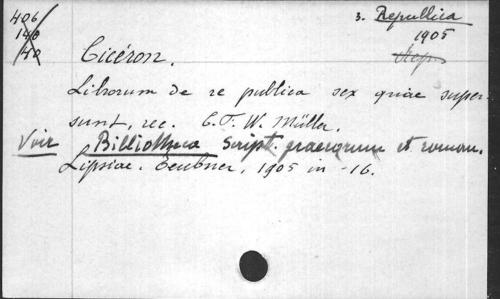 406
140
40
3. Republica
1905
Cicéron.
Librorum de re publica sex quae super-
sunt, rec. C. F. W. Müller.
Voir Billiotheca Script. graecorum et roman.
Lipsiae. Teubner, 1905 in -16.